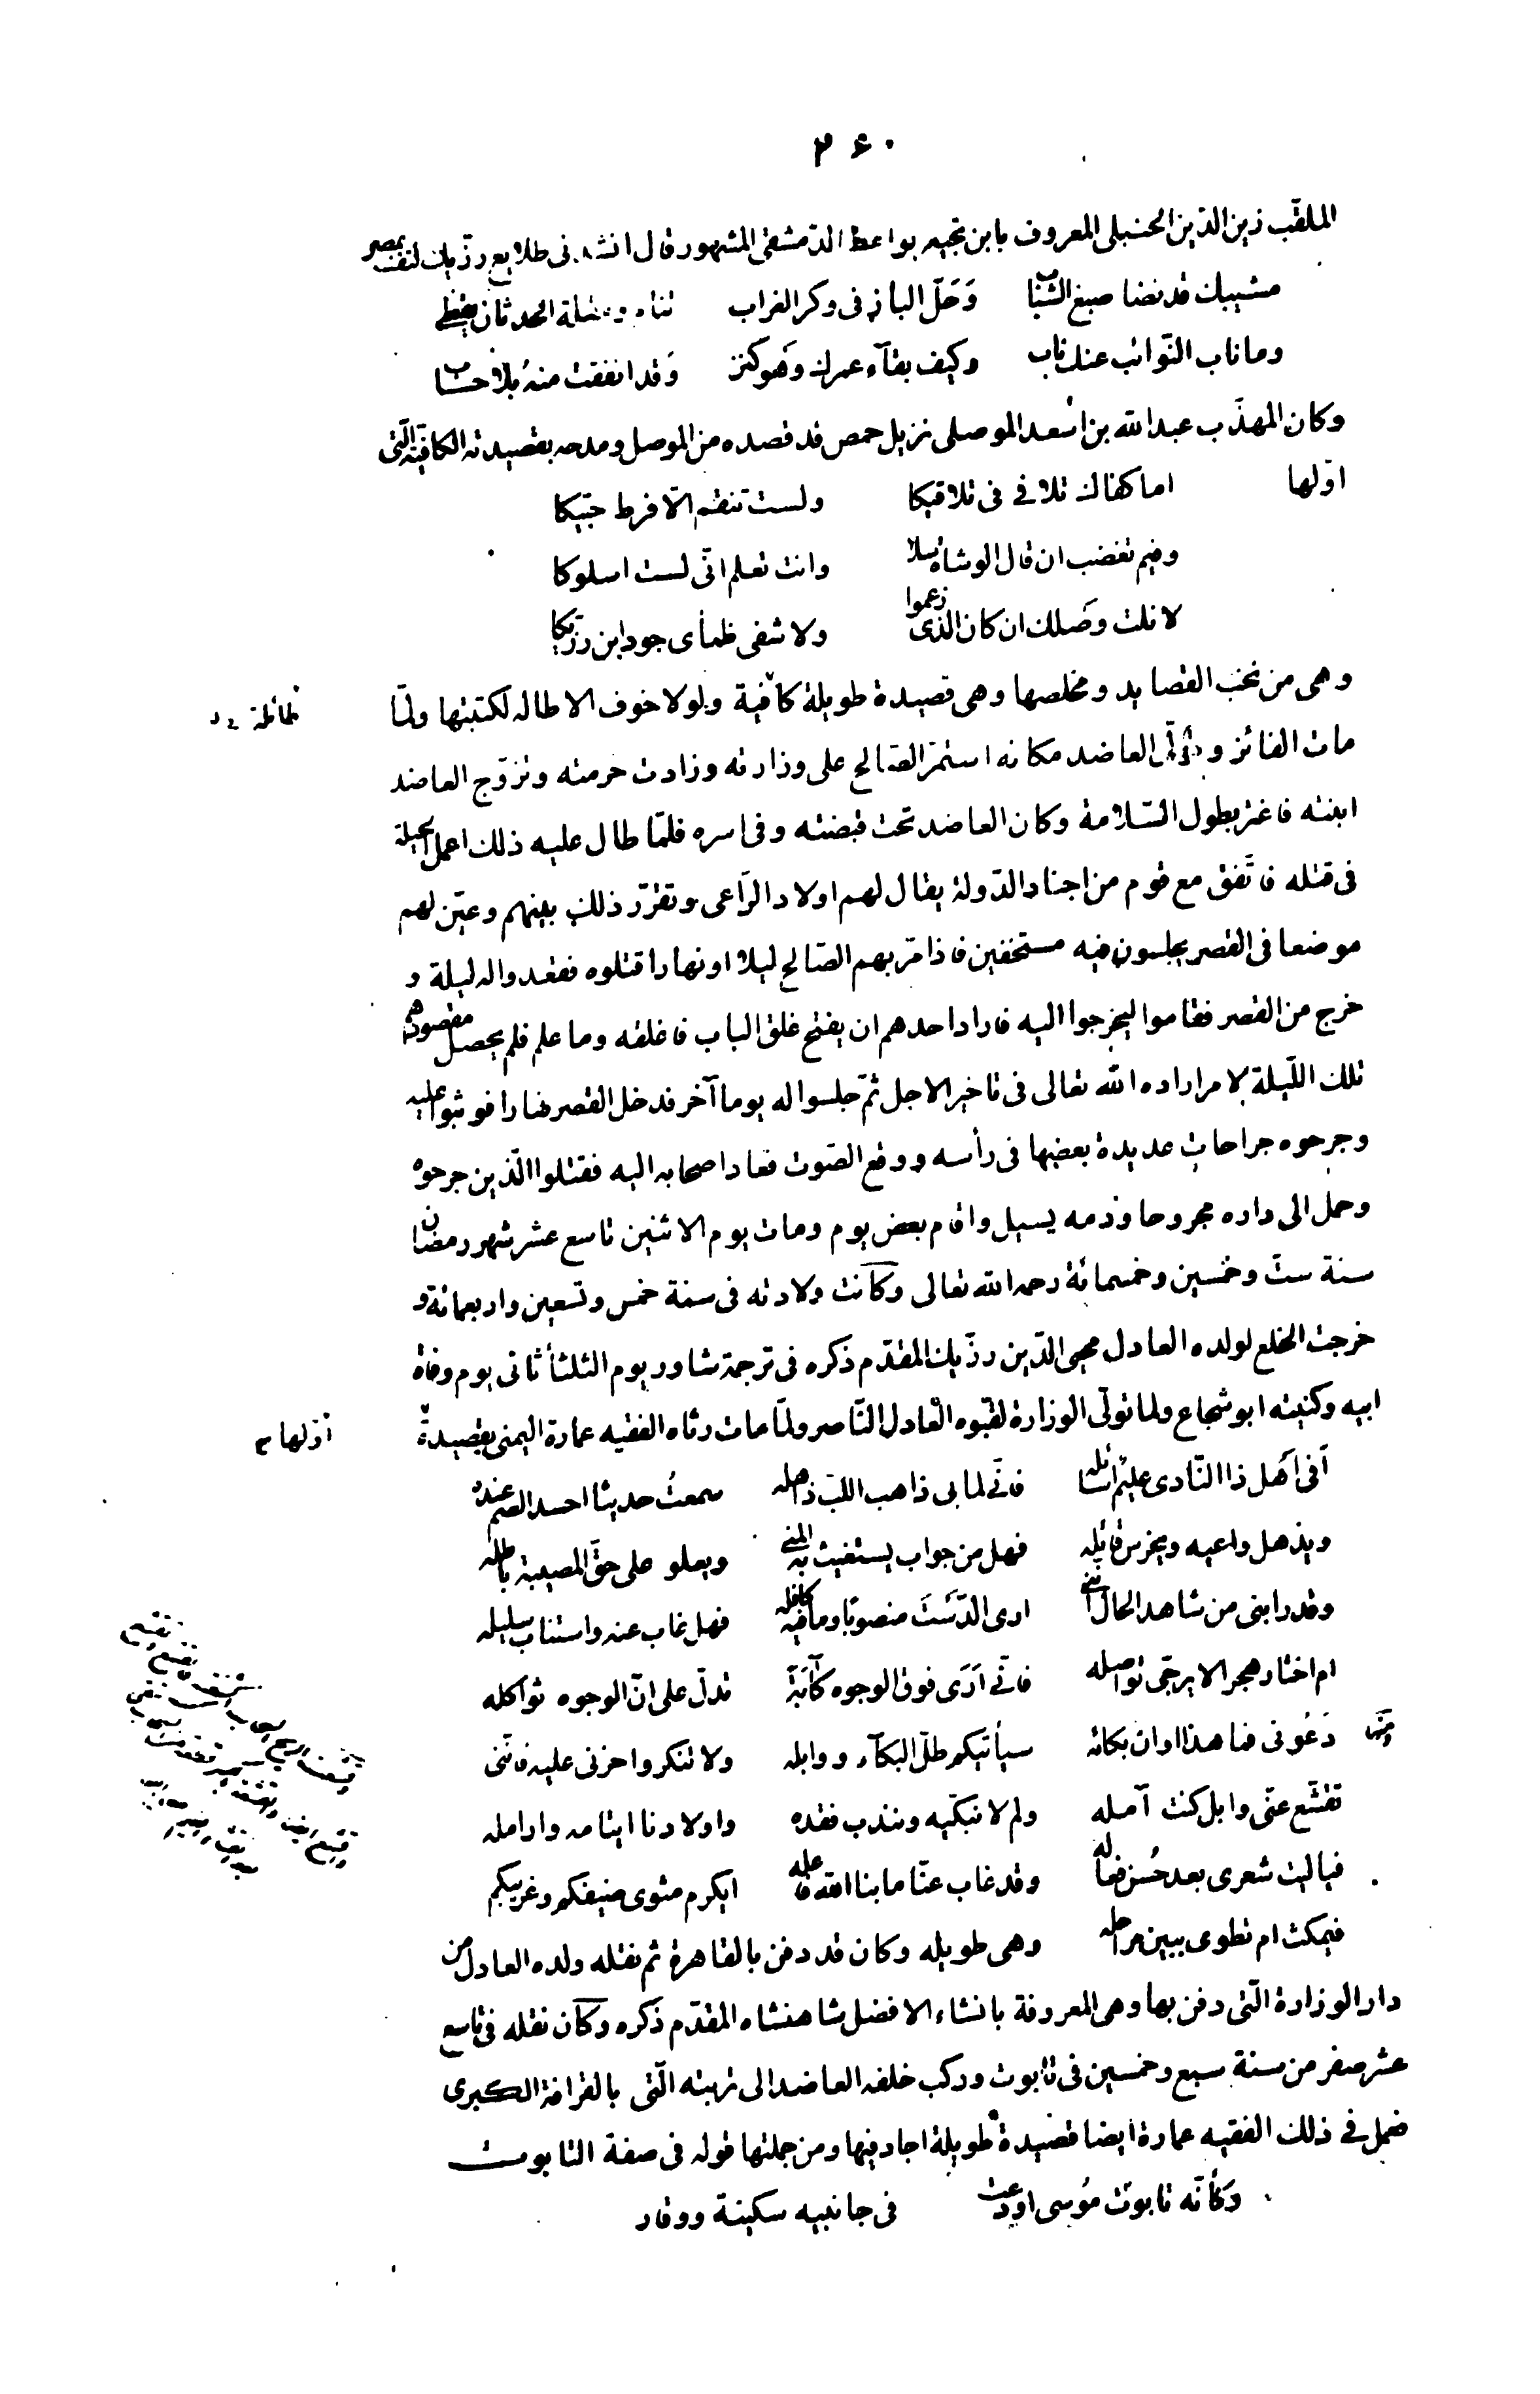 ٢٤٠
الملقّب زين الدّين الحنبلى المعروف بابن نجيه بواعظ الدّمشقى المشهور قال انشد فى طلايع رزّيك لنفسه بمصر
مشيبك قد نضا صبغ الشّباب وَحَلّ الباز فى وكر الغراب تنام ومقلة الحدثان يقظى
وما ناب النّوائب عنك ناب وكيف بقآء عمرك وَهَو كنز وَقد انفقت منهُ بلا حساب
وكان المهذّب عبدالله بن اسعد الموصلى نزيل حمص قد قصده من الموصل ومدحه بقصيدته الكافيّة الّتى
اوّلها اما كفاك تلافى فى تلاقيكا ولست تنقم الّا فرط حبّيكا
وفيم تغضب ان قال الوشاه سلا وانت تعلم انّى لست اسلوكا
لا نلت وصَلك ان كان الّذى زعموا ولا شفى ظمأى جود ابن رزّيكا
وهى من نخب القصايد ومخلصها وهى قصيدة طويلة كافية ولولا خوف الاطاله لكتبتها ولمّا
مات الفائز وتولّى العاضد مكانه استمرّ الصّالح على وزارته وزادت حرمته وتزوّج العاضد
ابنته فاغتر بطول السّلامة وكان العاضد تحت قبضته وفى اسره فلمّا طال عليه ذلك اعمل الحيلة
فى قتله فاتّفق مع قوم من اجناد الدّولة يقال لهم اولاد الرّاعى وتقرّر ذلك بينهم وعيّن لهم
موضعا فى القصر يجلسون فيه مستخفين فاذا مرّ بهم الصّالح ليلا او نهارا قتلوه فقعدوا له ليلة و
خرج من القصر فقاموا ليخرجوا اليه فاراد احدهم ان يفتح غلق الباب فاغلقه وما علم فلم يحصل مقصودهم
تلك اللّيلة لامر اراده الله تعالى فى تاخير الاجل ثمّ جلسوا له يوما آخر فدخل القصر نهارا فوثبوا عليه
وجرحوه جراحات عديدة بعضها فى رأسه ووقع الصّوت فعاد اصحابه اليه فقتلوا الّذين جرحوه
وحمل الى داره مجروحا ودمه يسيل واقام بعض يوم ومات يوم الاثنين تاسع عشر شهر رمضان
سنة ستّ وخمسين وخمسمائة رحمه الله تعالى وكانت ولادته فى سنة خمس وتسعين واربعمائة و
خرجت الخلع لولده العادل محيى الدّين رزّيك المقدّم ذكره فى ترجمة شاور يوم الثلثأ ثانى يوم وفاة
ابيه وكنيته ابو شجاع ولما تولّى الوزارة لقّبوه العادل النّاصر ولمّا مات رثاه الفقيه عمارة اليمنى بقصيدة
اوّلها
اَفى اَهل ذا النّادى عليم اسائله فانّى لما بى ذاهب اللّبّ ذاهله سمعتُ حديثا احسد الصّم عنده
ويذهل واعيه ويخرس قائله فهل من جواب يستغيث به المنى ويعلو على حقّ المصيبة باطله
وقد رابنى من شاهد الحال انّنى ارى الدّسَت منصوبًا وما فيه كافله فهل غاب عنه واستناب سليله
ام اختار هجرا لا يرجّى تواصله فانّى اَرَى فوق الوجوه كآبَة تدلّ على انّ الوجوه ثواكله
ومنها دَعُونى فما هذا اوان بكائه سيأتيكم طلّ البكآء ووابله ولا تنكروا حزنى عليه فانّنى
تقشّع عنّى وابل كنت آمله ولم لا نبكّيه ونندب فقده واولادنا ايتامه وارامله
فياليت شعرى بعد حُسن فعاله وقد غاب عنّا ما بنا الله فاعله ايكرم مثوى ضيفكم وغريبكم
فيمكث ام تطوى ببين مراحله وهى طويله وكان قد دفن بالقاهرة ثم نقله ولده العادل من
دار الوزارة الّتى دفن بها وهى المعروفة بانشاء الافضل شاهنشاه المقدّم ذكره وكان نقله فى تاسع
عشر صفر من سنة سبع وخمسين فى تابوت وركب خلفه العاضد الى تربته الّتى بالقرافة الكبرى
فعمل فى ذلك الفقيه عمارة ايضا قصيدة طويلة اجاد فيها ومن جملتها قوله فى صفة التابوت
وَكأنّه تابوت مُوسى اودعت فى جانبيه سكينة ووقار